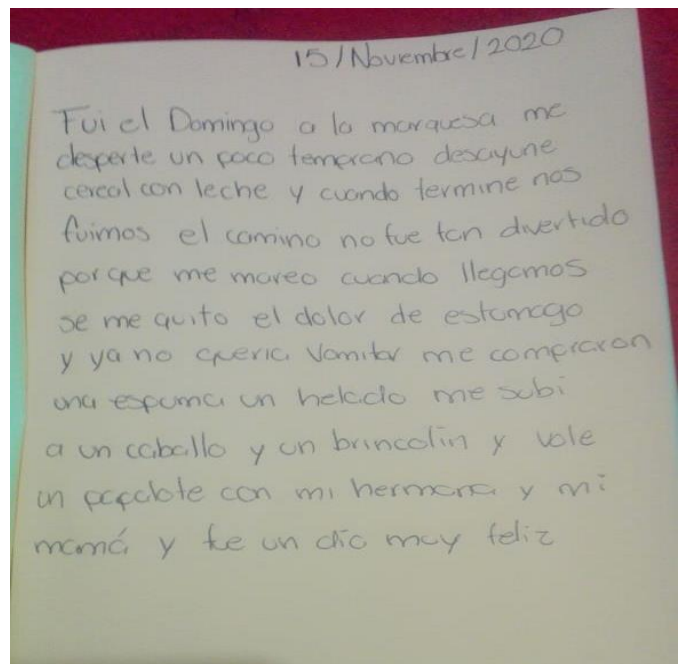 15/Noviembre/2020
Fui el Domingo a la marquesa me
desperte un poco temprano desayune
cereal con leche y cuando termine nos
fuimos el camino no fue tan divertido
porque me mareo cuando llegamos
se me quito el dolor de estomago
y ya no queria vomitar me compraron
una espuma un helado me subi
a un caballo y un brincolin y vole
un papalote con mi hermana y mi
mamá y fue un dia muy feliz